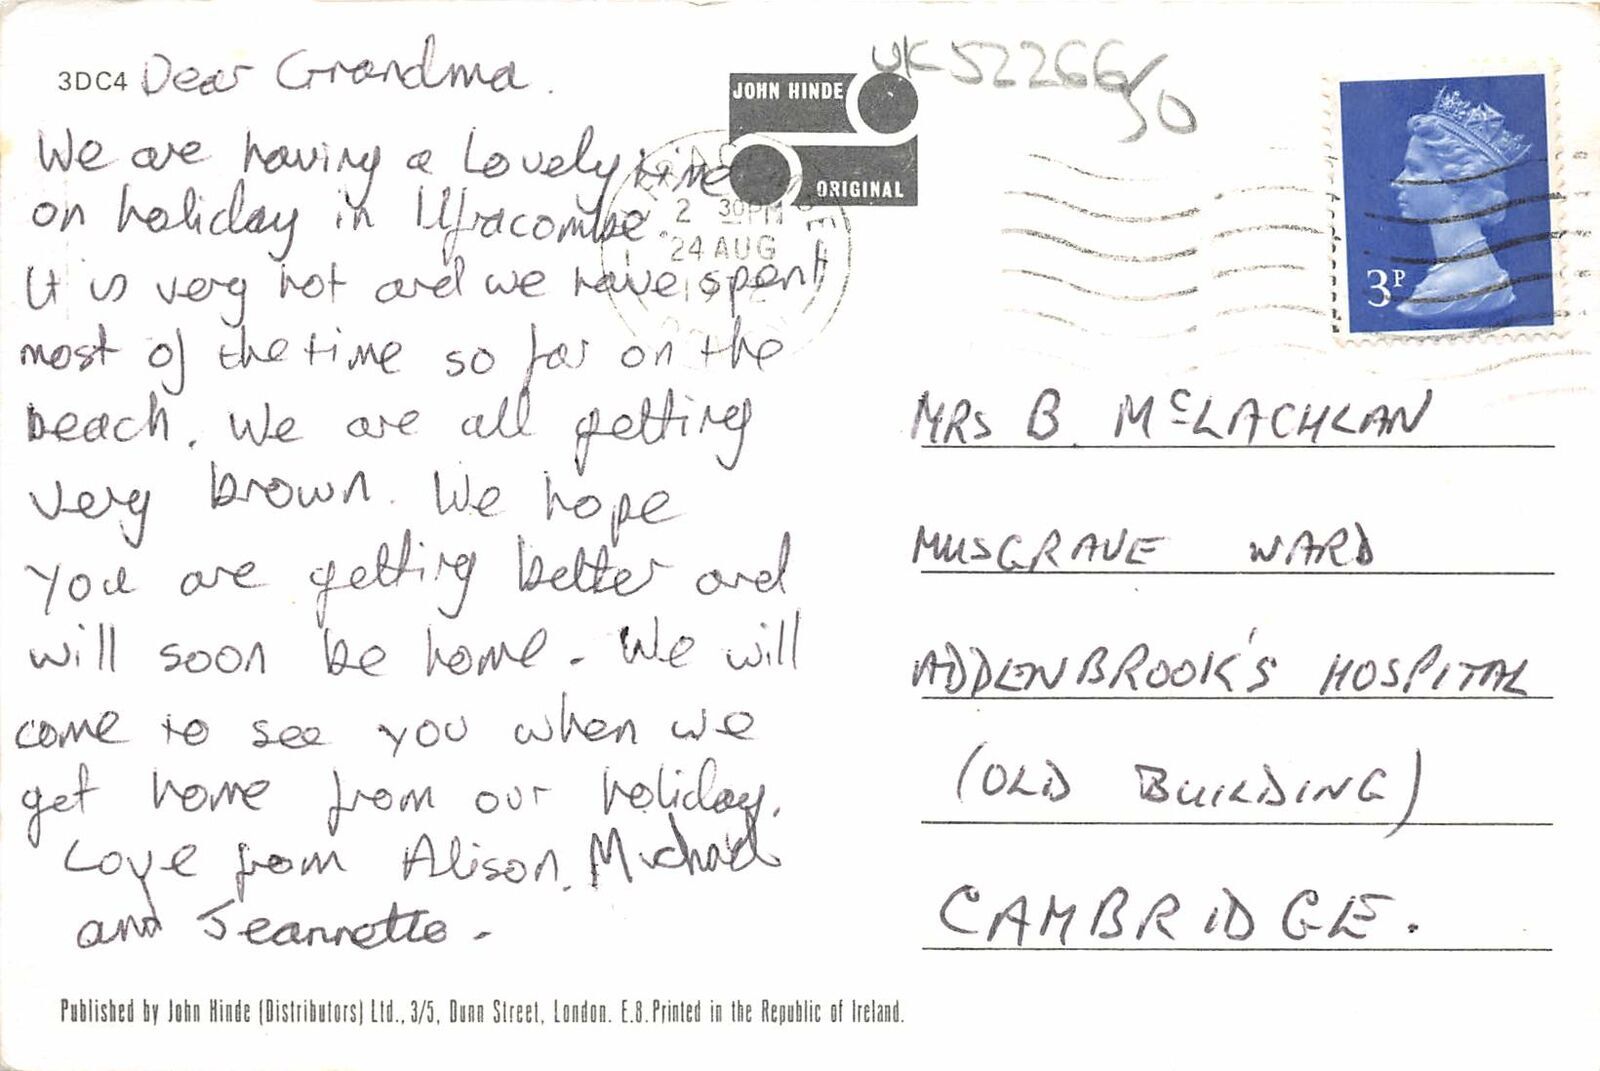 3DC4 Dear Grandma.
We are having a Lovely time
on holiday in Ilfracombe.
It is very hot and we have spent
most of the time so far on the
beach. We are all getting
very brown. We hope
you are getting better and
will soon be home. We will
come to see you when we
get home from our holiday.
Love from Alison, Michael
and Jeannette.
Published by John Hinde (Distributors) Ltd., 3/5, Dunn Street, London. E.8. Printed in the Republic of Ireland.
JOHN HINDE
ORIGINAL
2 30PM
24 AUG
UK52266/50
3P
MRS B. McLACHLAN
MUSGRAVE WARD
ADDENBROOK'S HOSPITAL
(OLD BUILDING)
CAMBRIDGE.